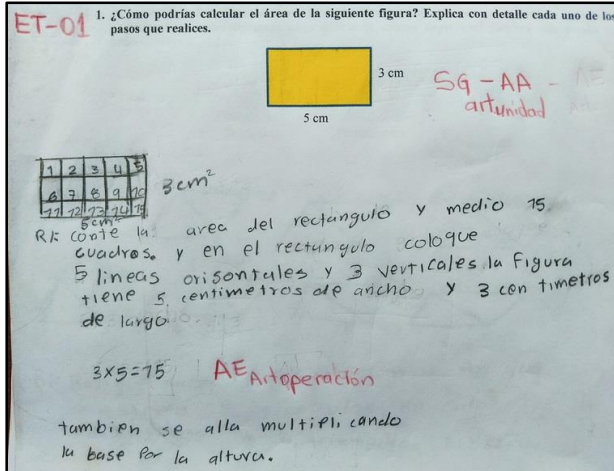 ET-01
1. ¿Cómo podrías calcular el área de la siguiente figura? Explica con detalle cada uno de los
pasos que realices.
3 cm
5 cm
SG - AA -
artunidad
1 2 3 4 5
6 7 8 9 10
11 12 13 14 15
3cm²
5cm²
R/: conte la area del rectangulo y medio 15
cuadros. y en el rectangulo coloque
5 lineas orisontales y 3 verticales la figura
tiene 5 centimetros de ancho y 3 centimetros
de largo.
3x5=15
AE Artoperación
tambien se alla multiplicando
la base por la altura.